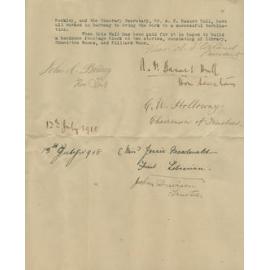 Weekley, and the Honorary Secretary, Mr A. F. Basset Hull, have
all worked in harmony to bring the work to a successful termina-
tion.
When this Hall has been paid for it is hoped to build
a handsome frontage block of two stories, consisting of Library,
Committee Rooms, and Billiard Room.
President
John A.
Hon
A. F. Basset Hull
Hon Secretary
C. W. Holloway
Chairman of Trustees
13th July 1918
13th July 1918
(Mrs) Jessie Macdonald
First Librarian
John
Trustee